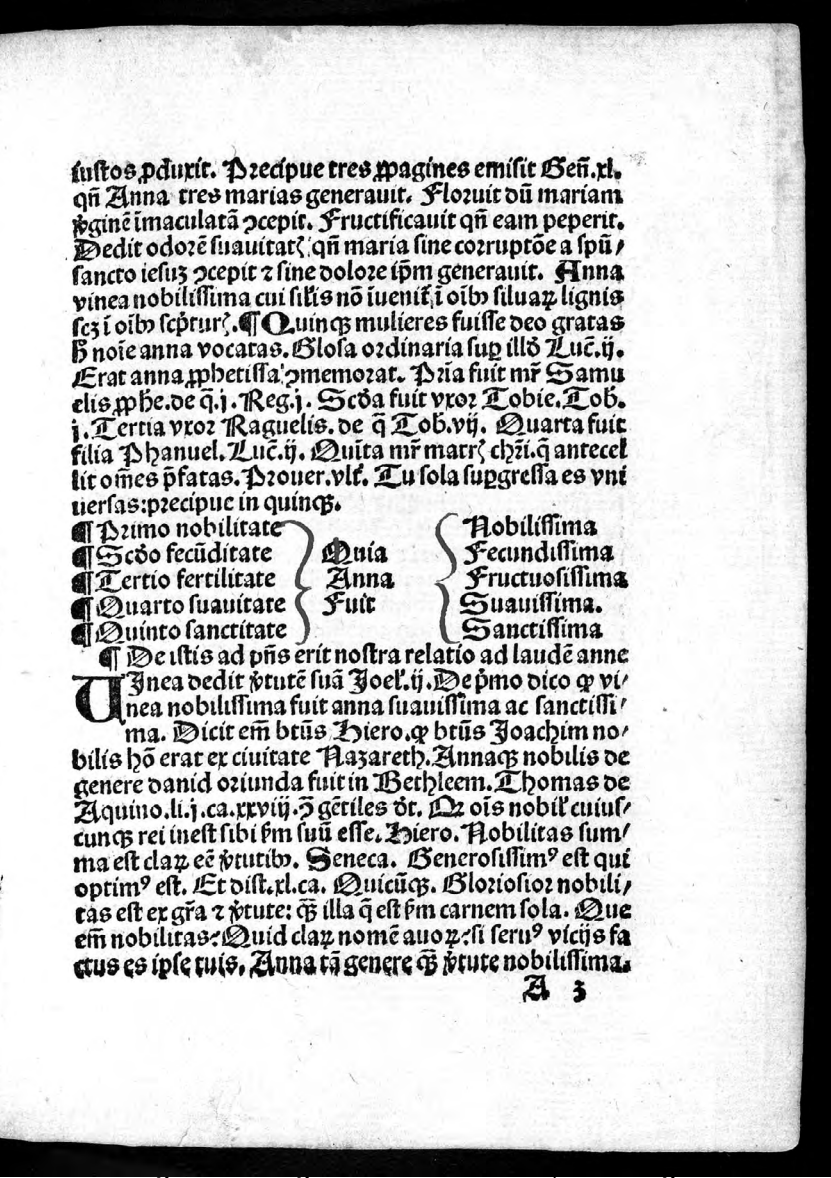 iustos ꝓduxit. Precipue tres ꝓpagines emisit Gen̄.xl.
qn̄ Anna tres marias generauit. Floruit dū mariam
v̓ginē īmaculatā ꝯcepit. Fructificauit qn̄ eam peperit.
Dedit odorē suauitatꝭ qn̄ maria sine corruptōe a spū/
sancto iesuꝫ ꝯcepit ⁊ sine dolore ip̄m generauit. Anna
vinea nobilissima cui sil̓is nō īuenit̓ ī oīb⁹ siluaꝝ lignis
scꝫ ī oīb⁹ scp̄turꝭ.¶ Quinqꝫ mulieres fuisse deo gratas
h̄ noīe anna vocatas. Glosa ordinaria suꝑ illō Luc̄.ij.
Erat anna ꝓphetissa ꝯmemorat. Pria fuit mr̄ Samu
elis ꝓphe.de q̄.j. Reg.j. Scd̄a fuit vxor Tobie. Tob̄.
j. Tertia vxor Raguelis. de q̄ Tob̄.vij. Quarta fuit
filia Phanuel. Luc̄.ij. Quīta mr̄ matrꝭ chr̄i.q̄ antecel
lit om̄es p̄fatas. Prouer.vlt̓. Tu sola suꝑgressa es vni
uersas:precipue in quinqꝫ.
¶ Primo nobilitate Quia Nobilissima
¶ Scd̄o fecūditate Anna Fecundissima
¶ Tertio fertilitate Fuit Fructuosissima
¶ Quarto suauitate Suauissima.
¶ Quinto sanctitate Sanctissima
¶ De istis ad pn̄s erit nostra relatio ad laudē anne
UInea dedit v̓tutē suā Joel̓.ij. De p̄mo dico ꝙ vi/
nea nobilissima fuit anna suauissima ac sanctissi/
ma. Dicit em̄ btūs Hiero.ꝙ btūs Joachim no/
bilis hō erat ex ciuitate Nazareth. Annaqꝫ nobilis de
genere dauid oriunda fuit in Bethleem. Thomas de
Aquino.li.j.ca.xxviij.ꝯ̄ gētiles dt̄. Ꝙ oīs nobil̓ cuius/
cunqꝫ rei inest sibi ẜm suū esse. Hiero. Nobilitas sum/
ma est claꝝ eē v̓tutib⁹. Seneca. Generosissimꝰ est qui
optimꝰ est. Et dist.xl.ca. Quicūqꝫ. Gloriosior nobili/
tas est ex gr̄a ⁊ v̓tute: qꝫ̄ illa q̄ est ẜm carnem sola. Que
em̄ nobilitas? Quid claꝝ nomē auoꝝ? si seruꝰ vicijs fa
ctus es ipse tuis. Anna tā genere qꝫ̄ v̓tute nobilissima.
A 3